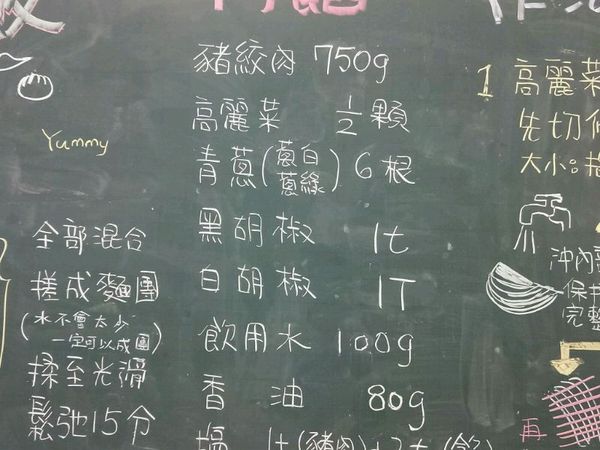 內餡
Yummy
全部混合
搓成麵團
(水不會太少
一定可以成團)
揉至光滑
鬆弛15分
豬絞肉 750g
高麗菜 1/2 顆
青蔥(蔥白 蔥綠) 6根
黑胡椒 1t
白胡椒 1T
飲用水 100g
香油 80g
鹽 1t(豬肉)+2t(飲)
1 高麗菜
先切
大小:
沖內
保持
完整
再